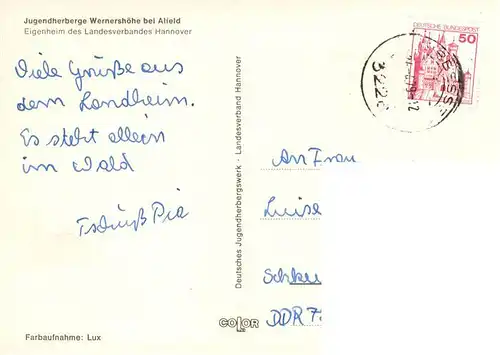 Jugendherberge Wernershöhe bei Alfeld
Eigenheim des Landesverbandes Hannover
Viele Grüße aus
dem Landheim.
Es steht allein
im Wald
Tschüß Pia
Farbaufnahme: Lux
Deutsches Jugendherbergswerk - Landesverband Hannover
COLOR
DEUTSCHE BUNDESPOST
50
322
An Frau
Luise
Schkeu
DDR 7